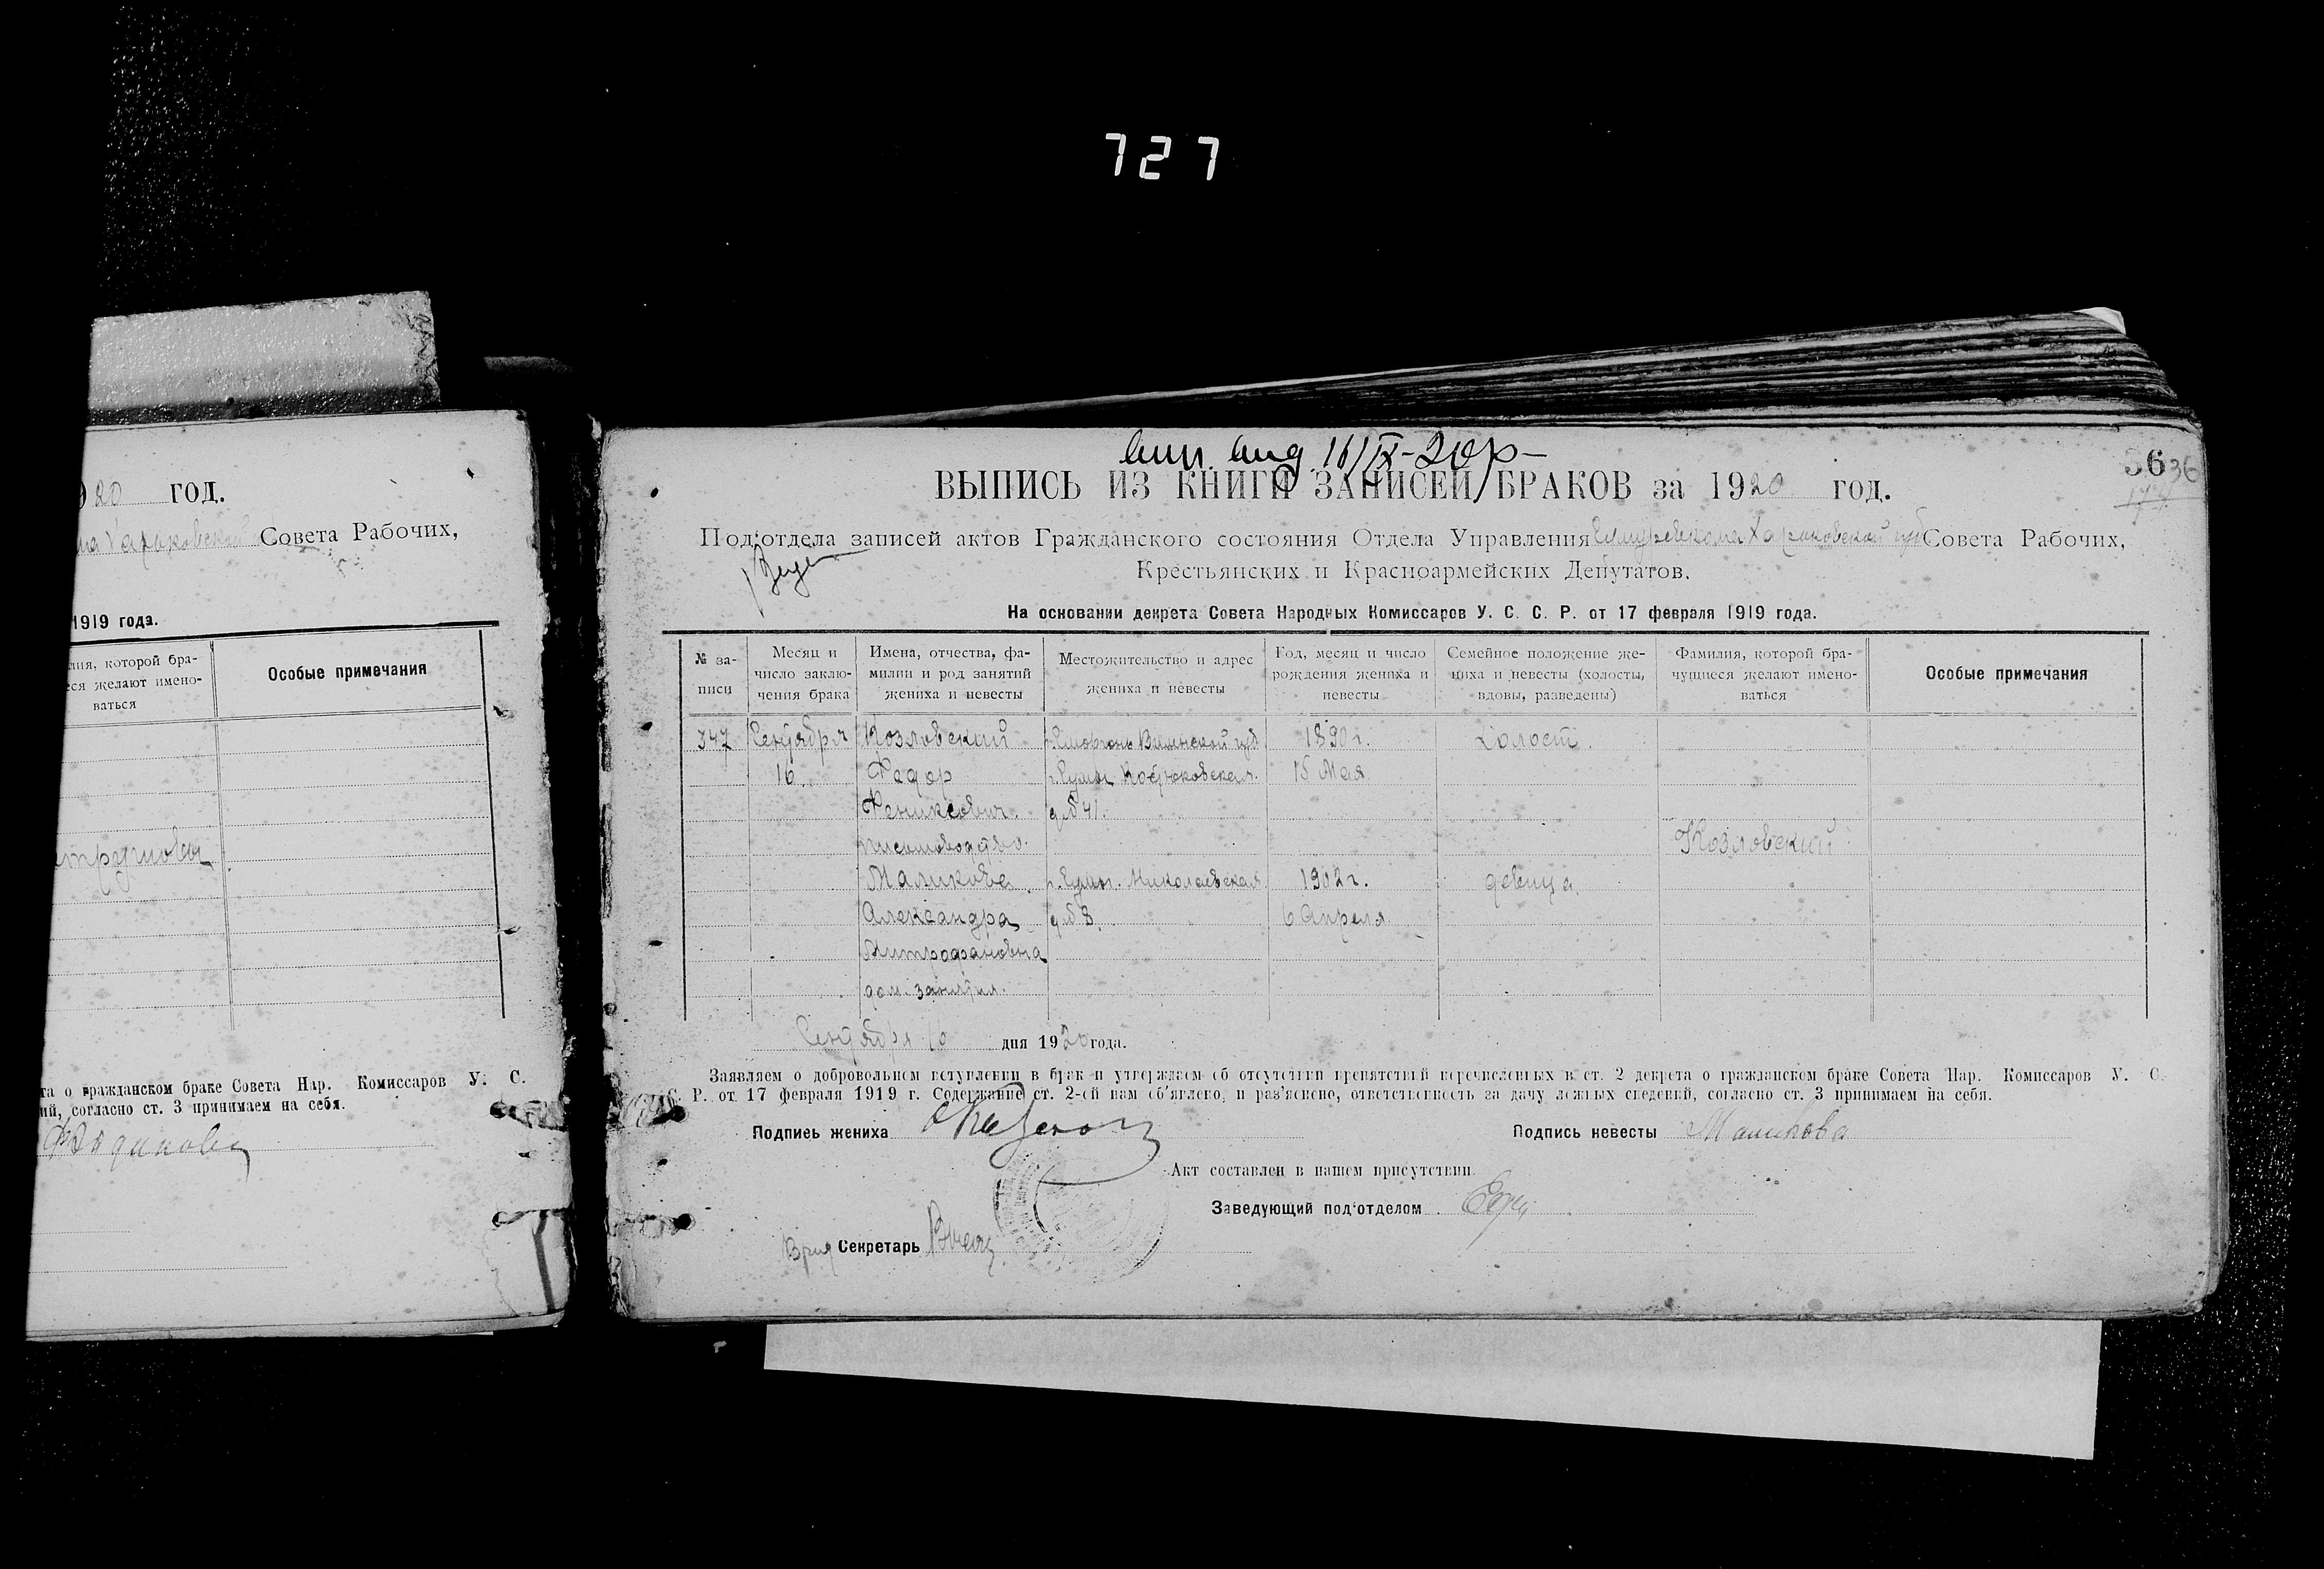 727
20 год.
Харьковской Совета Рабочих,
1919 года.
лия, которой бра-
еся желают имено-
ваться
Особые примечания
та о гражданском браке Совета Нар. Комиссаров У. С.
ий, согласно ст. 3 принимаем на себя.
36
ВЫПИСЬ ИЗ КНИГИ ЗАПИСЕЙ БРАКОВ за 1920 год.
Под'отдела записей актов Гражданского состояния Отдела Управления Харьковской губ Совета Рабочих,
Крестьянских и Красноармейских Депутатов.
На основании декрета Совета Народных Комиссаров У. С. С. Р. от 17 февраля 1919 года.
№ за-
писи
Месяц и
число заклю-
чения брака
Имена, отчества, фа-
милии и род занятий
жениха и невесты
Местожительство и адрес
жениха и невесты
Год, месяц и число
рождения жениха и
невесты
Семейное положение же-
ниха и невесты (холосты,
вдовы, разведены)
Фамилия, которой бра-
чущиеся желают имено-
ваться
Особые примечания
347 Сентября Козловский Виленской губ 1890 г. холост.
16 Федор г. Сумы 15 Мая
Феликсович д № 41.
письмоводство. Козловский
Маликова г. Сумы. Николаевская 1902 г. девица
Александра д № 8. 6 Апреля
Митрофановна
дом. занятия.
Сентября 16 дня 1920 года.
Заявляем о добровольном вступлении в брак и утверждаем об отсутствии препятствий перечисленных в ст. 2 декрета о гражданском браке Совета Нар. Комиссаров У. С.
С. Р. от 17 февраля 1919 г. Содержание ст. 2-ой нам об'явлено, и раз'яснено, ответственность за дачу ложных сведений, согласно ст. 3 принимаем на себя.
Подпись жениха
Подпись невесты Маликова
Акт составлен в нашем присутствии
Заведующий под'отделом
Врид Секретарь